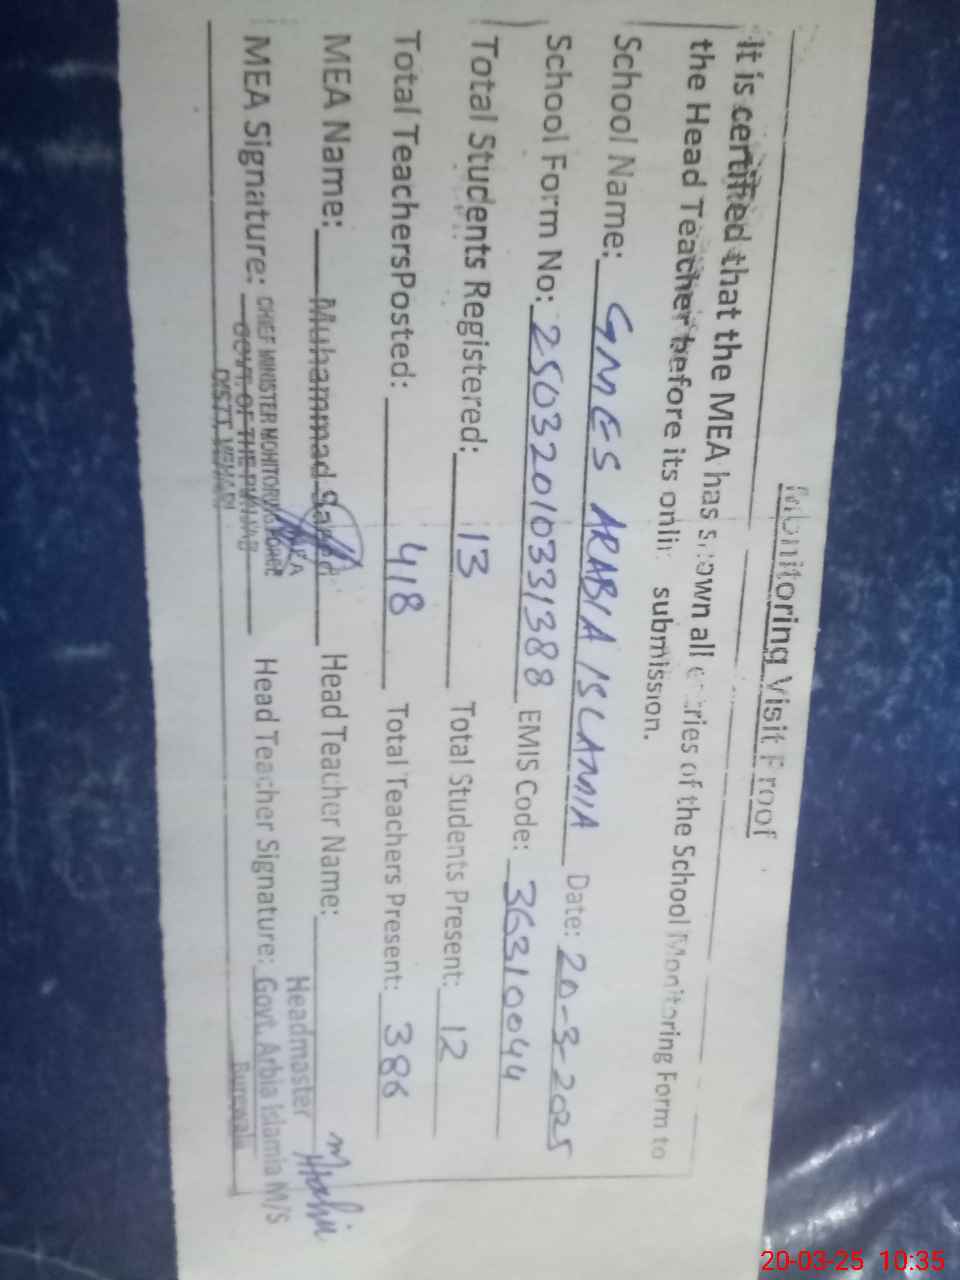 Monitoring Visit Proof
It is certified that the MEA has shown all entries of the School Monitoring Form to
the Head Teacher before its onlin submission.
School Name: GMES ARABIA ISLAMIA Date: 20-3-2025
School Form No: 25032010331388 EMIS Code: 36310044
Total Students Registered: 13 Total Students Present: 12
Total TeachersPosted: 418 Total Teachers Present: 386
MEA Name: Muhammad Head Teacher Name:
MEA
Headmaster
MEA Signature: CHIEF MINISTER MONITORING FORCE Head Teacher Signature: Govt. Arbia Islamia M/S
GOVT. OF THE PUNJAB
Burewala
DISTT. VEHARI
20-03-25 10:35